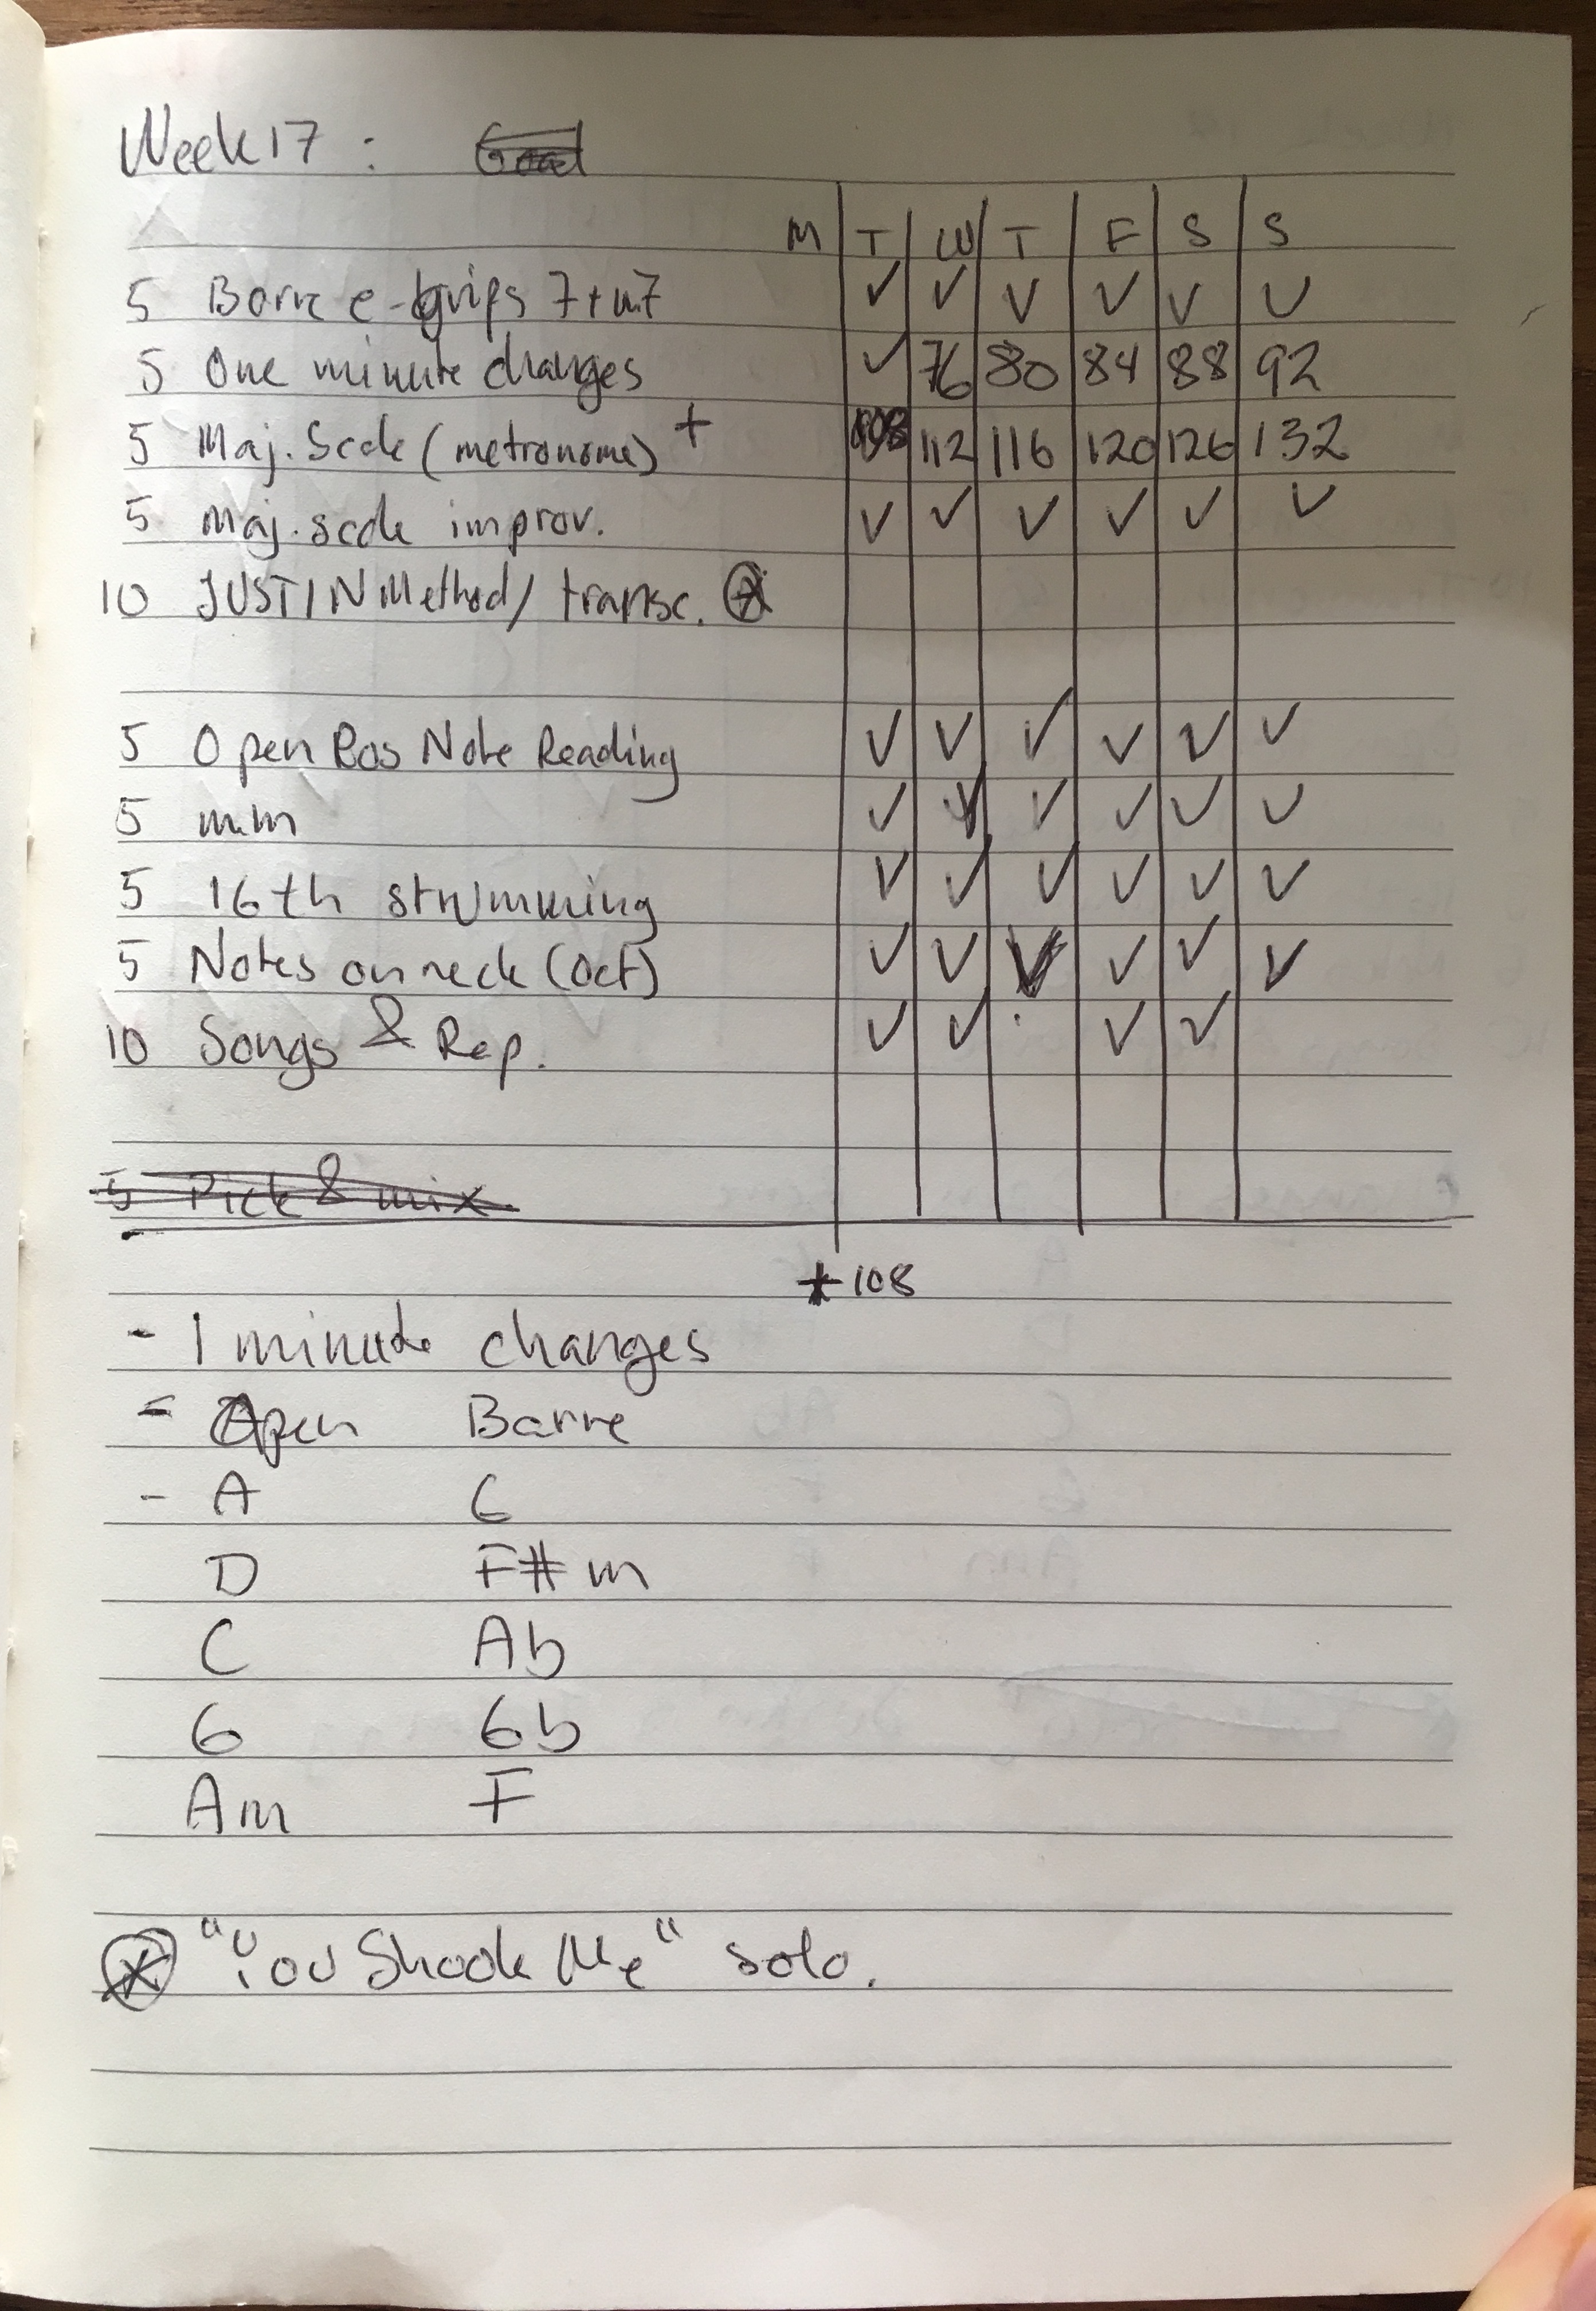 Week 17 :
M T W T F S S
5 Barre e-grips 7+m7 ✓ ✓ ✓ ✓ ✓ ✓
5 One minute changes ✓ 76 80 84 88 92
5 Maj. Scale (metronome) + 108 112 116 120 126 132
5 Maj. scale improv. ✓ ✓ ✓ ✓ ✓ ✓
10 JUSTIN Method/ transc. ⊛
5 Open Pos Note Reading ✓ ✓ ✓ ✓ ✓ ✓
5 mm ✓ ✓ ✓ ✓ ✓ ✓
5 16th strumming ✓ ✓ ✓ ✓ ✓ ✓
5 Notes on neck (Oct) ✓ ✓ ✓ ✓ ✓ ✓
10 Songs & Rep. ✓ ✓ ✓ ✓
5 Pick & mix
* 108
- 1 minute changes
- Open Barre
- A G
D F#m
C Ab
G Gb
Am F
⊛ "You Shook Me" solo.